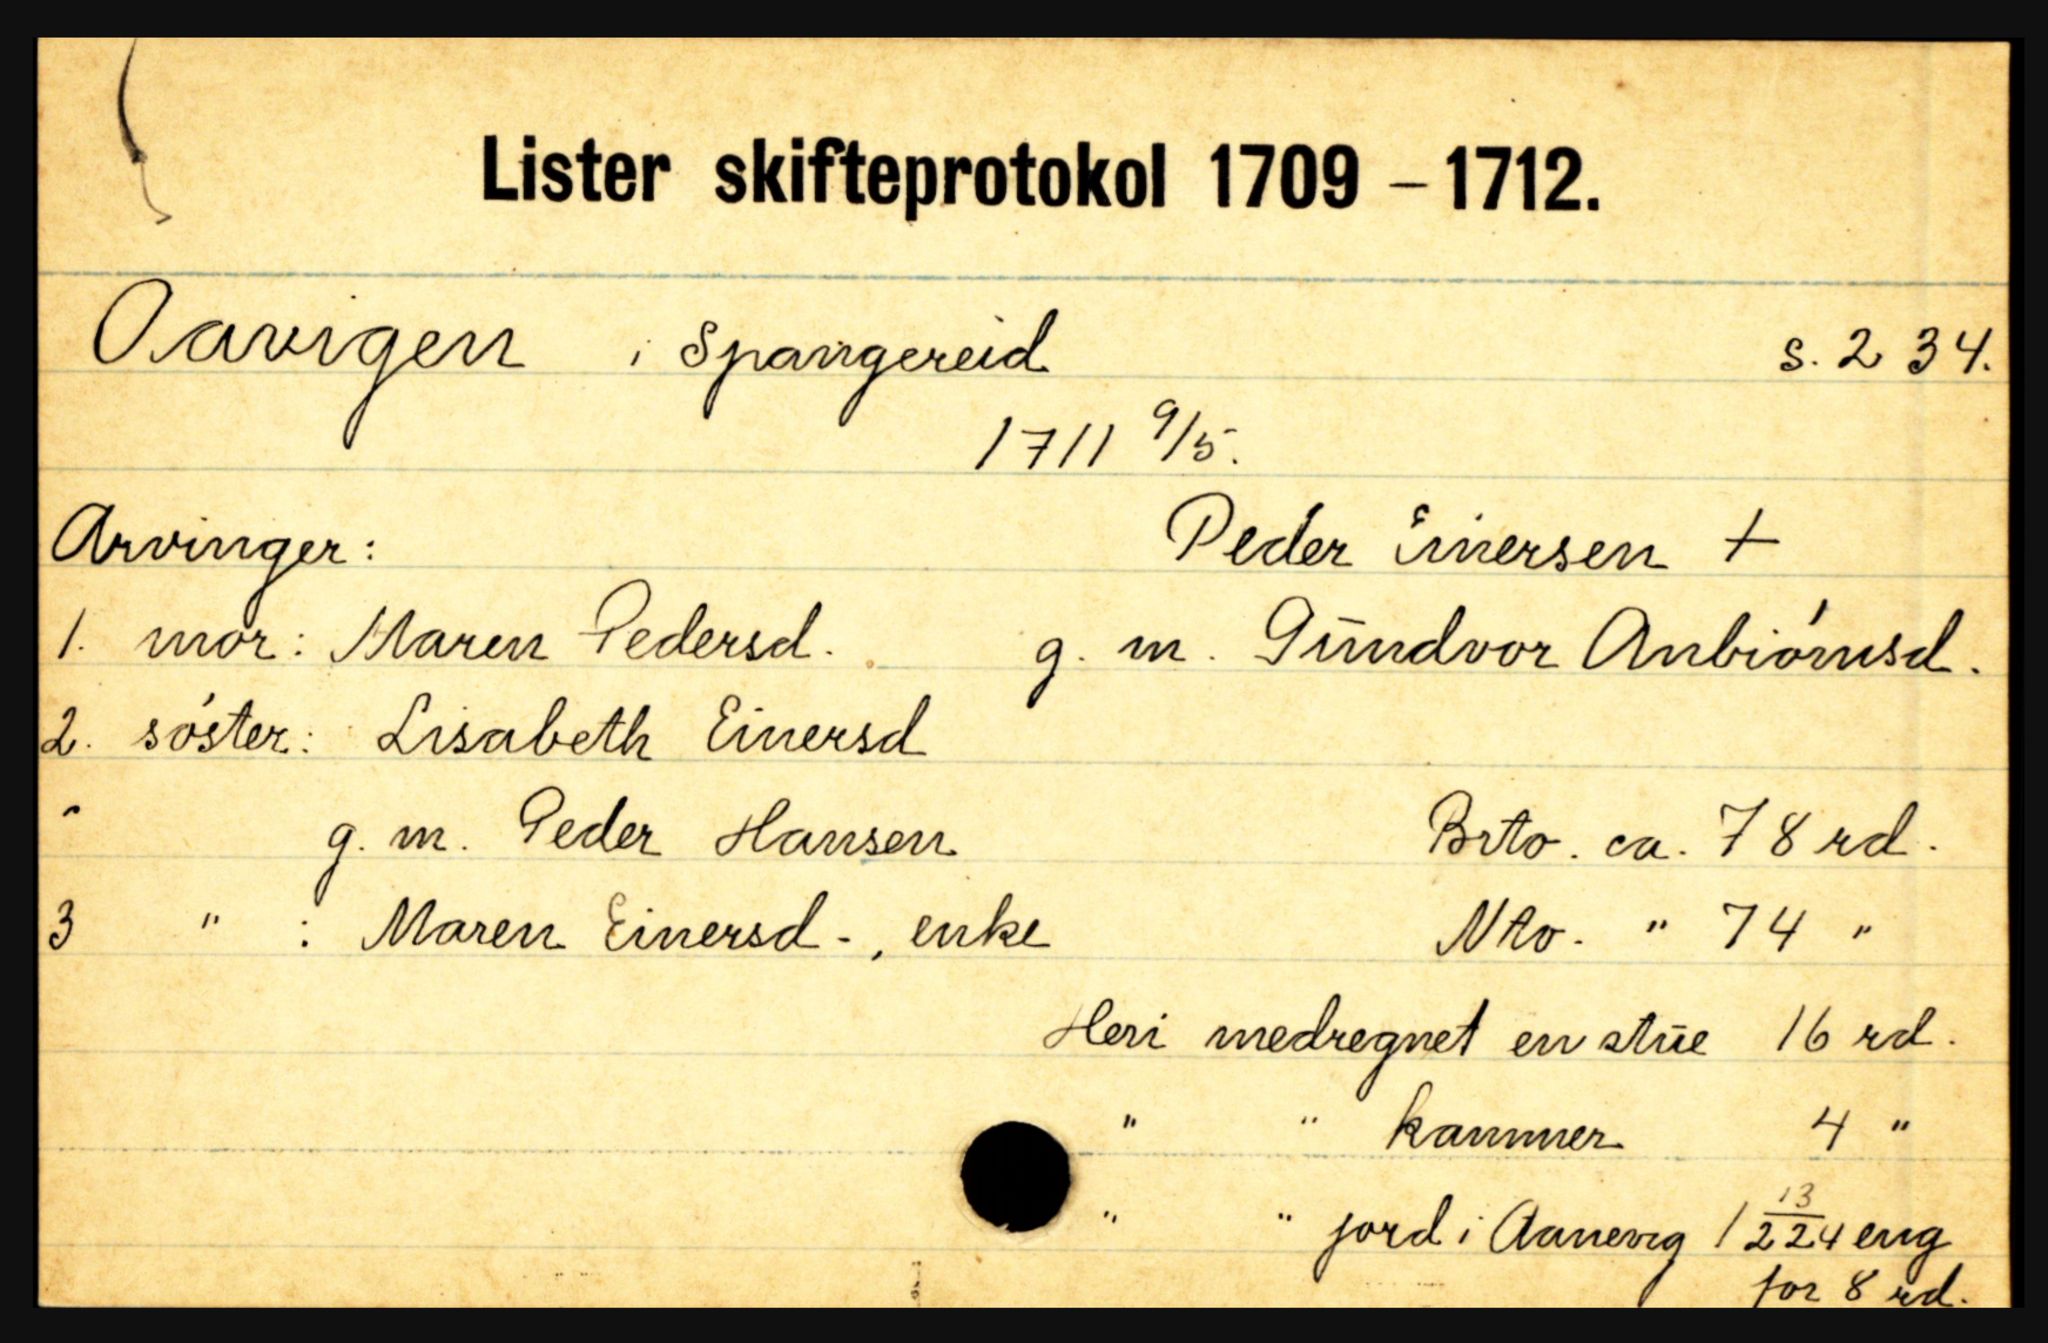 Lister skifteprotokol 1709 – 1712.
Oavigen i Spangereid s. 234.
1711 9/5.
Arvinger: Peder Einersen +
1. mor: Maren Pedersd. g. m. Gundvor Anbiörnsd.
2. söster: Lisabeth Einersd
" g. m. Peder Hansen Brto. ca. 78 rd.
3 " : Maren Einersd-, enke Nto. " 74 "
Heri medregnet en stue 16 rd.
" " kammer 4 "
" " jord i Aanevig 1 13/224 eng
for 8 rd.